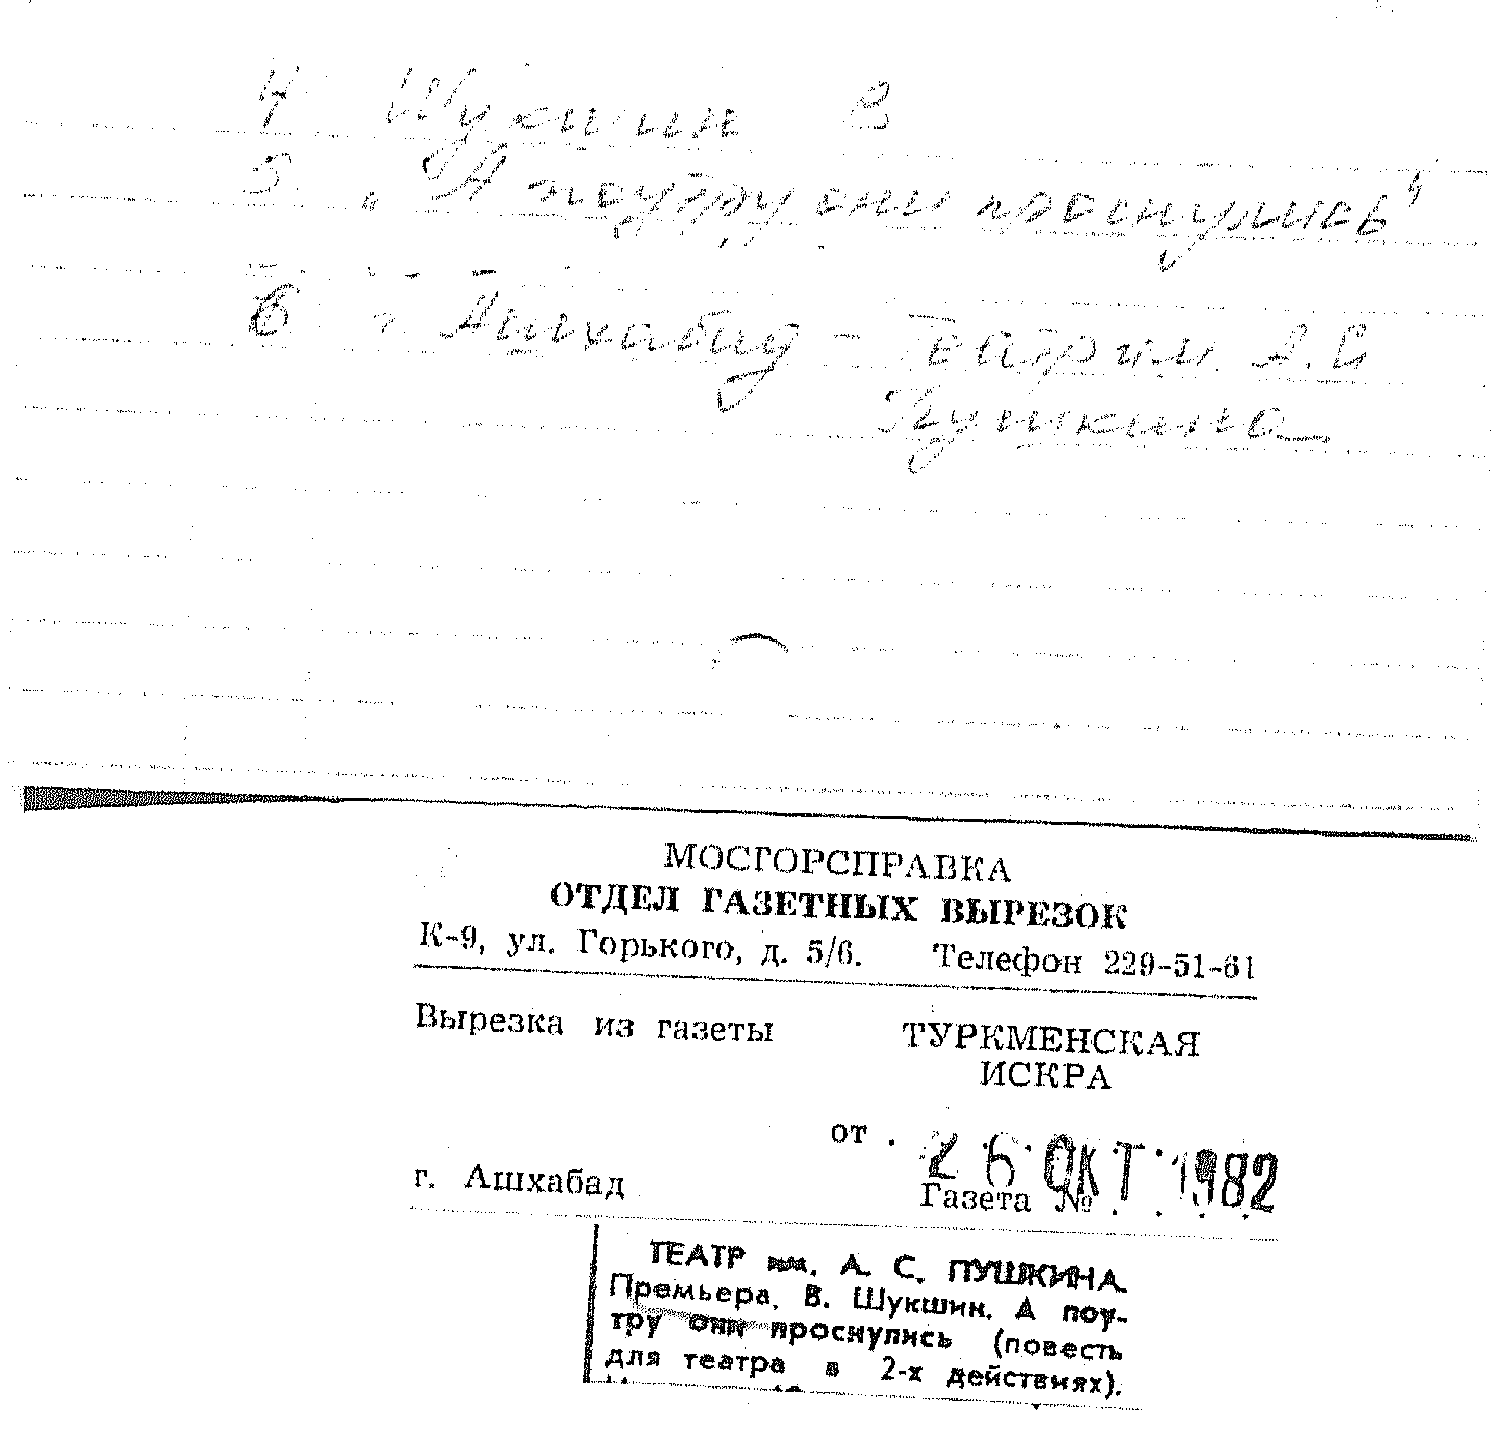 4 Шукшин В
5 „А поутру они проснулись"
6 г. Ашхабад - Театр им А.С
Пушкина
МОСГОРСПРАВКА
ОТДЕЛ ГАЗЕТНЫХ ВЫРЕЗОК
К-9, ул. Горького, д. 5/6. Телефон 229-51-61
Вырезка из газеты ТУРКМЕНСКАЯ
ИСКРА
от . 26 ОКТ 1982
г. Ашхабад Газета № . . . .
ТЕАТР им. А. С. ПУШКИНА.
Премьера. В. Шукшин. А поу-
тру они проснулись (повесть
для театра в 2-х действиях).